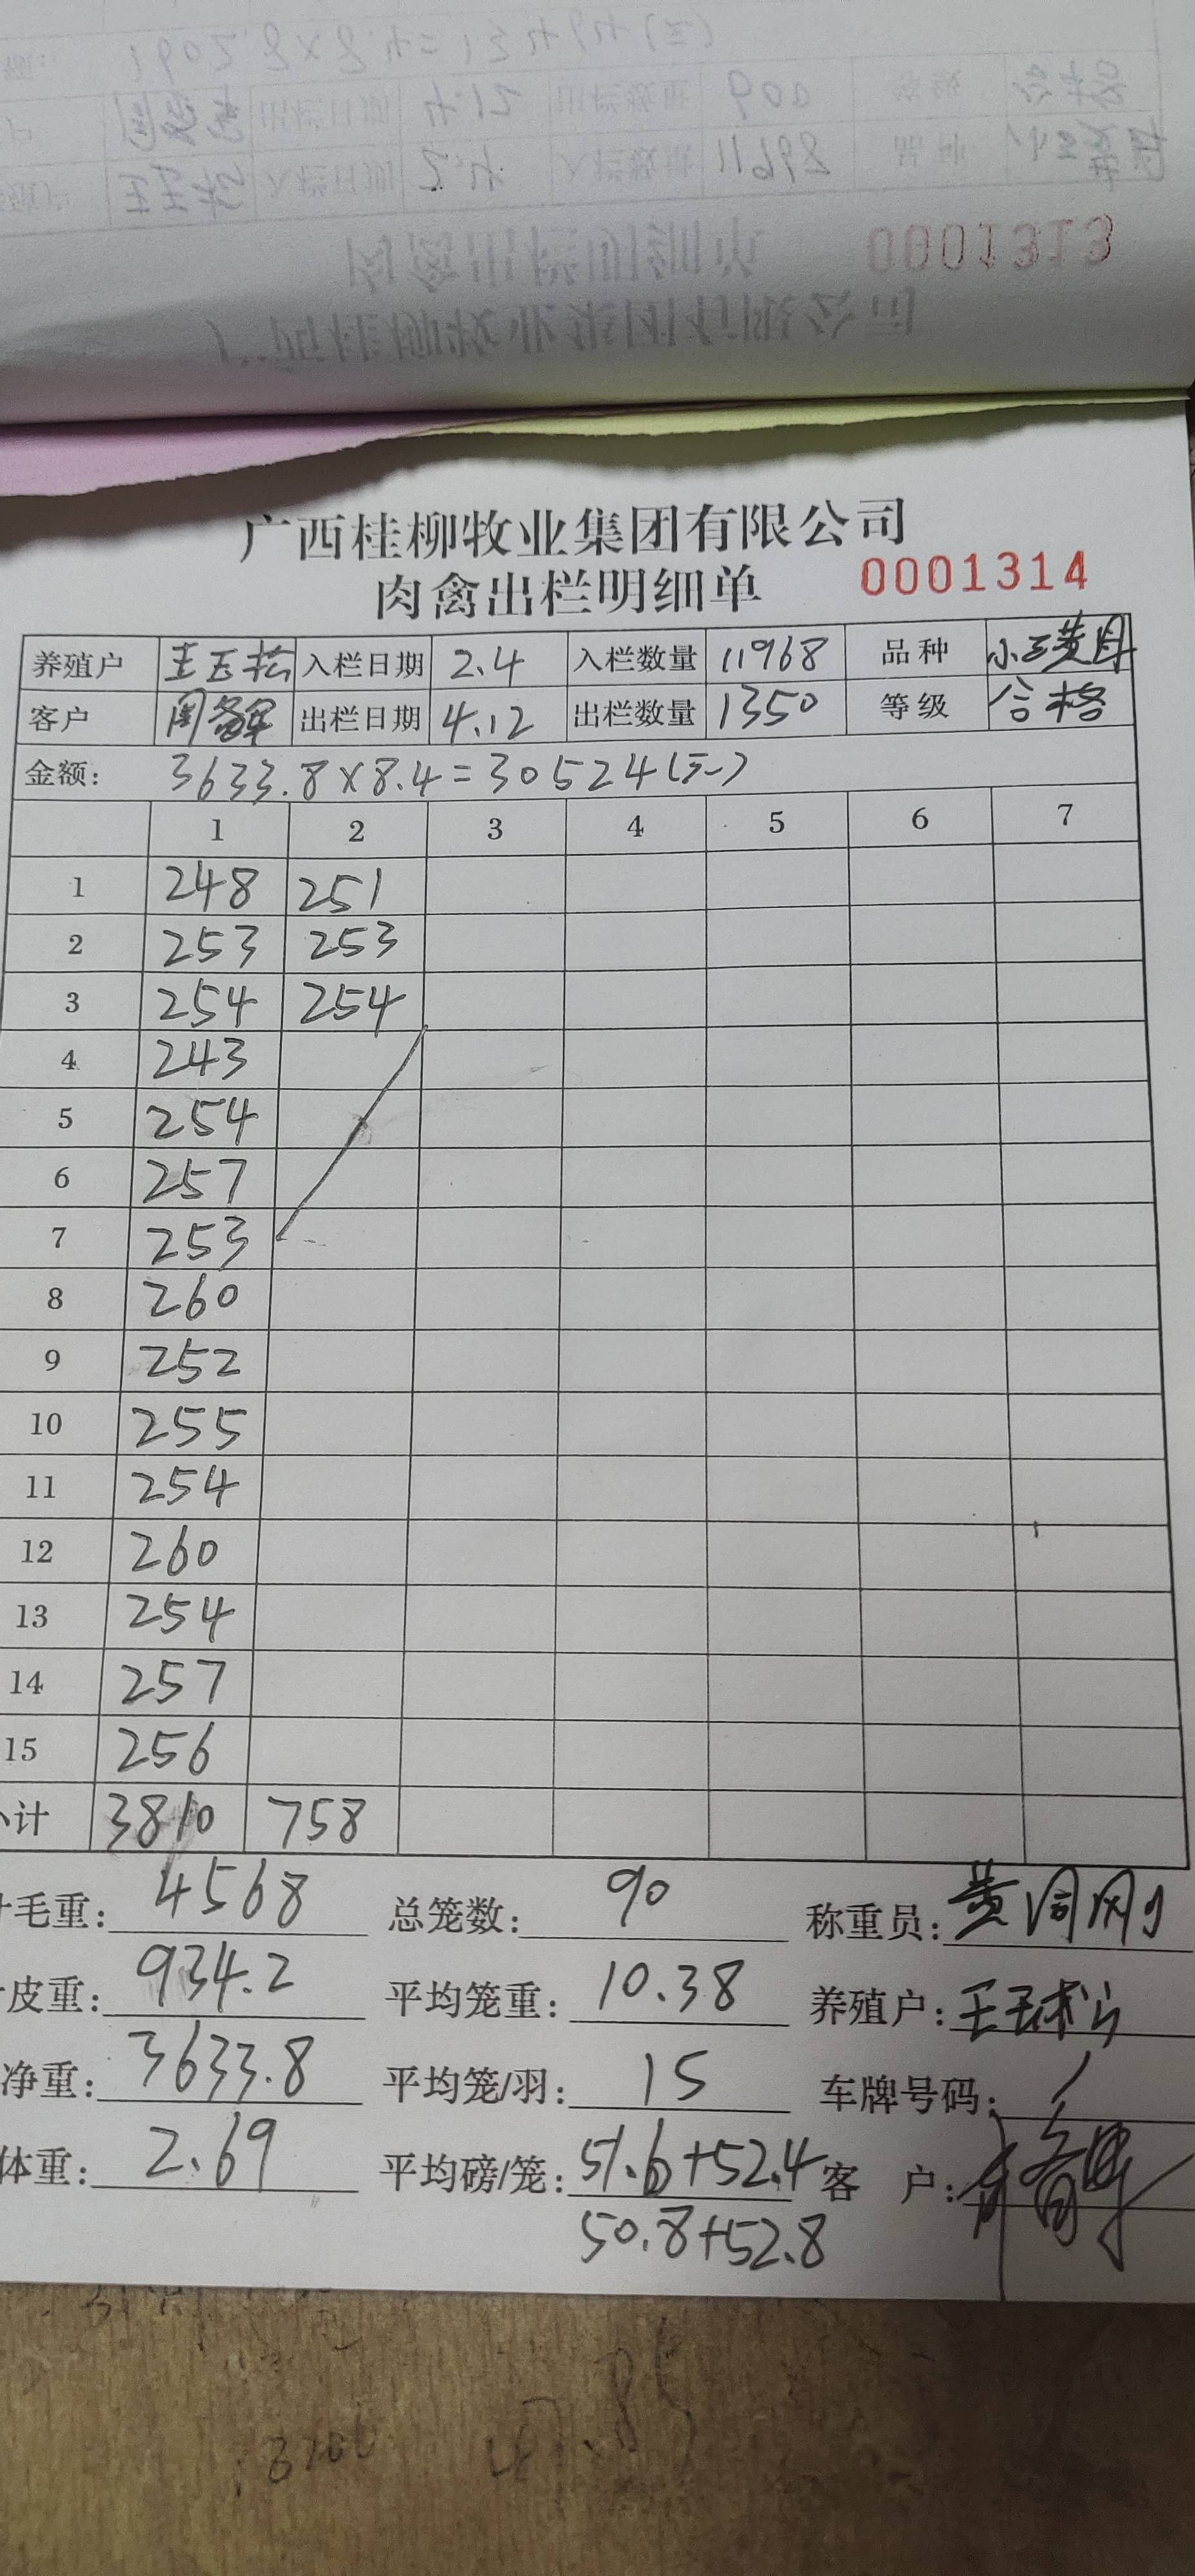 广西桂柳牧业集团有限公司
肉禽出栏明细单 0001314
养殖户 王玉松 入栏日期 2.4 入栏数量 11968 品种
客户 出栏日期 4.12 出栏数量 1350 等级 合格
金额: 3633.8×8.4=30524(元)
1 2 3 4 5 6 7
1 248 251
2 253 253
3 254 254
4 243
5 254
6 257
7 253
8 260
9 252
10 255
11 254
12 260
13 254
14 257
15 256
小计 3810 758
计毛重: 4568 总笼数: 90 称重员:
皮重: 934.2 平均笼重: 10.38 养殖户: 王玉松
净重: 3633.8 平均笼/羽: 15 车牌号码: /
体重: 2.69 平均磅/笼: 51.6+52.4 客户:
50.8+52.8